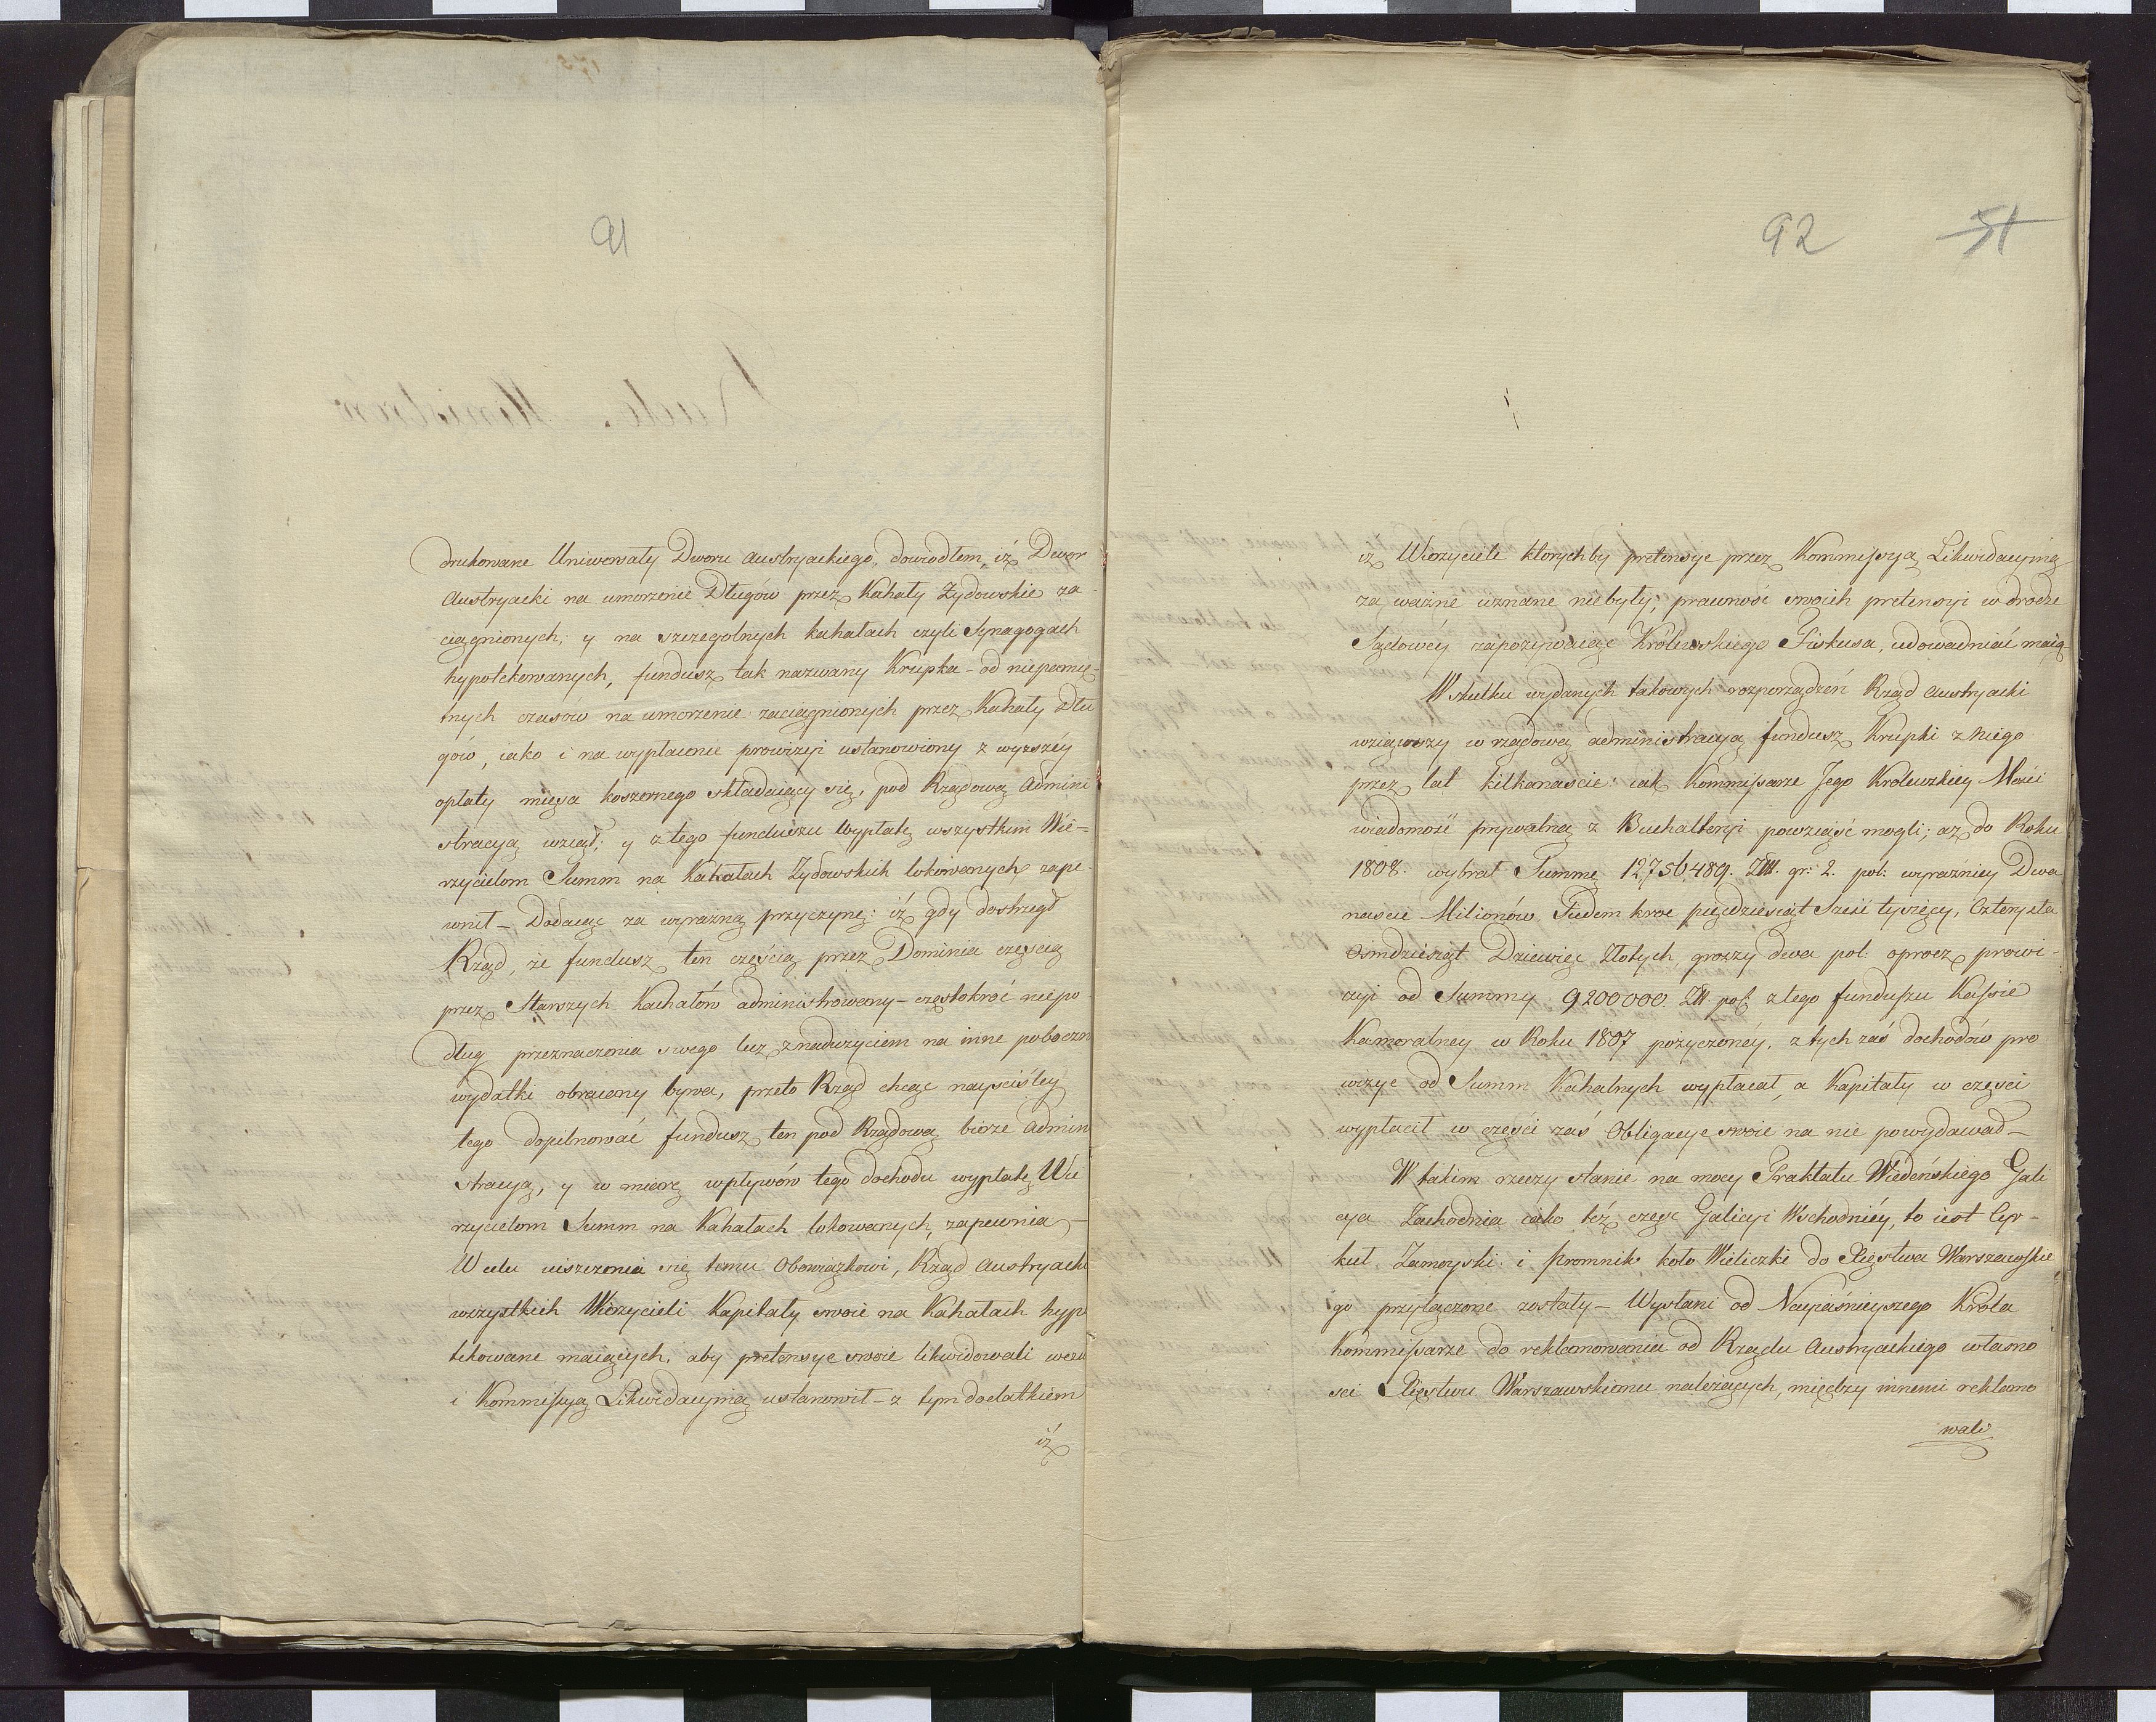 91
drukowane Uniwersały Dworu Austryackiego, dowiodłem, iż Dwor
Austryacki na umorzenie Długów przez Kahały Żydowskie za-
ciągnionych; y na szczegolnych kahałach czyli Synagogach
hypotekowanych, fundusz tak nazwany Krupka – od niepamię-
tnych czasów na umorzenie zaciągnionych przez Kahały Dłu
gów, iako i na wypłacenie prowizyi ustanowiony z wyższéy
opłaty mięsa koszernego składaiący się, pod Rządową Admini
stracyą wziął; y z tego funduszu wypłatę wszystkim Wie=
rzycielom Summ na Kahałach Żydowskich lokowanych zape-
wnił – Dodaiąc za wyraźną przyczynę: iż gdy dostrzegł
Rząd, że fundusz ten częścią przez Dominia częscią
przez Starszych Kachałów administrowany – częstokroć niepo
dług przeznaczenia swego lecz z nadużyciem na inne poboczn
wydatki obracany bywa, przeto Rząd chcąc nayściśley
tego dopilnować fundusz ten pod Rządową bierze Admin
stracyą, y w miarę wpływów tego dochodu wypłatę Wie
rzycielom Summ na Kahałach lokowanych, zapewnia –
W celu uiszczenia się temu Obowiązkowi, Rząd Austryacki
wszystkich Wierzycieli Kapitały swoie na Kahałach hypo
tekowane maiących, aby pretensye swoie likwidowali wezw
i Kommissyą Likwidacyiną ustanowił – z tym dodatkiem
iż
92 51
iż Wierzyciele ktorychby pretensye przez Kommissyą Likwidacyiną
za ważne uznane niebyły, prawność swoich pretensyi w drodze
Sądowéy zapozywaiąc Królewskiego Fiskusa, udowadniać maią
W skutku wydanych takowych rozporządzeń Rząd Austryacki
wziąwszy w rządową administracyą fundusz Krupki z niego
przez lat kilkanascie: iak Kommissarze Jego Krolewskiey Mości
wiadomość prywatną z Buchalteryi powziąść mogli; aż do Roku
1808. wybrał Summę 12,756,489. Złł. gr: 2. pol: wyraźniey Dwa
nascie Milionów, Siedem kroc pięćdziesiąt Sześć tysięcy, Czterysta
Osmdziesiąt Dziewięć Złotych groszy dwa pol: oprocz prowi-
zyi od Summy 9200000. Zł. pol: z tego funduszu Kassie
Kameralney w Roku 1807 pożyczonéy, z tych zaś dochodów pro
wizye od Summ Kahalnych wypłacał, a Kapitały w części
wypłacił w części zaś Obligacye swoie na nie powydawał –
W takim rzeczy stanie na mocy Traktatu Wiedeńskiego Gali
cya Zachodnia iako też częsc Galicyi Wschodniéy, to iest Cyr-
kuł Zamoyski i promnik koło Wieliczki do Xięstwa Warszawskie
go przyłączone zostały – Wysłani od Nayiaśnieyszego Króla
Kommissarze do reklamowania od Rządu Austryackiego własno
sci Xięstwu Warszawskiemu należących, między innemi reklamo
wali